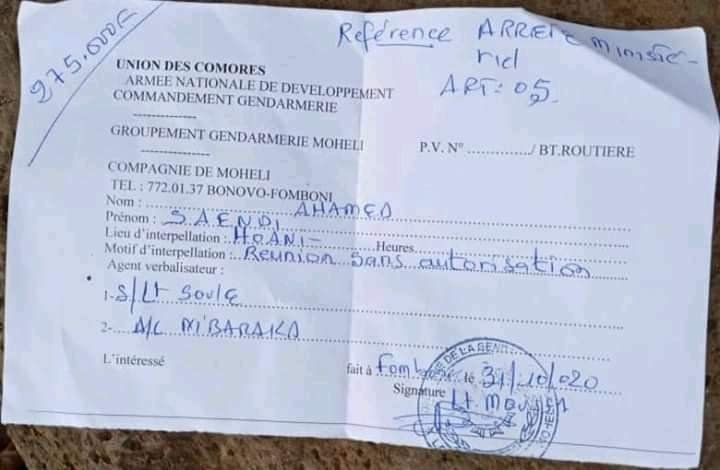 275.000€
Référence ARRETE MINISTE-
riel
ART: 05
UNION DES COMORES
ARMEE NATIONALE DE DEVELOPPEMENT
COMMANDEMENT GENDARMERIE
--------------
GROUPEMENT GENDARMERIE MOHELI
P.V. N° ............../ BT.ROUTIERE
--------------
COMPAGNIE DE MOHELI
TEL : 772.01.37 BONOVO-FOMBONI
Nom : AHAMED
Prénom : SAENDI
Lieu d'interpellation : HOANI- Heures
Motif d'interpellation : Réunion sans autorisation
Agent verbalisateur :
1- S/Lt SOULE
2- A/C M'BARAKA
L'intéressé
fait à Fomboni le 31/10/020
Signature